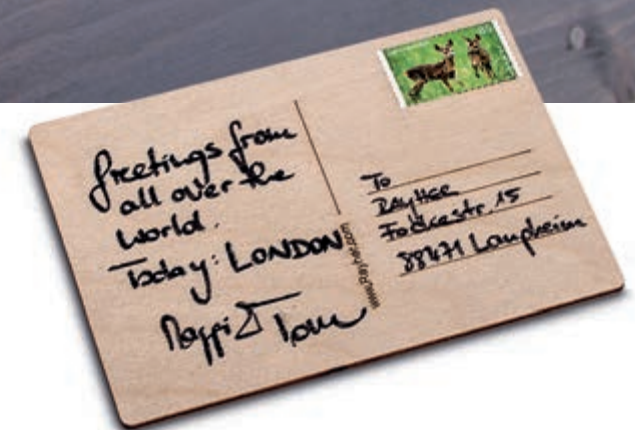 Greetings from
all over the
world.
Today: LONDON
Tom
www.Rayher.com
To
RAYHER
Fockestr. 15
88471 Laupheim